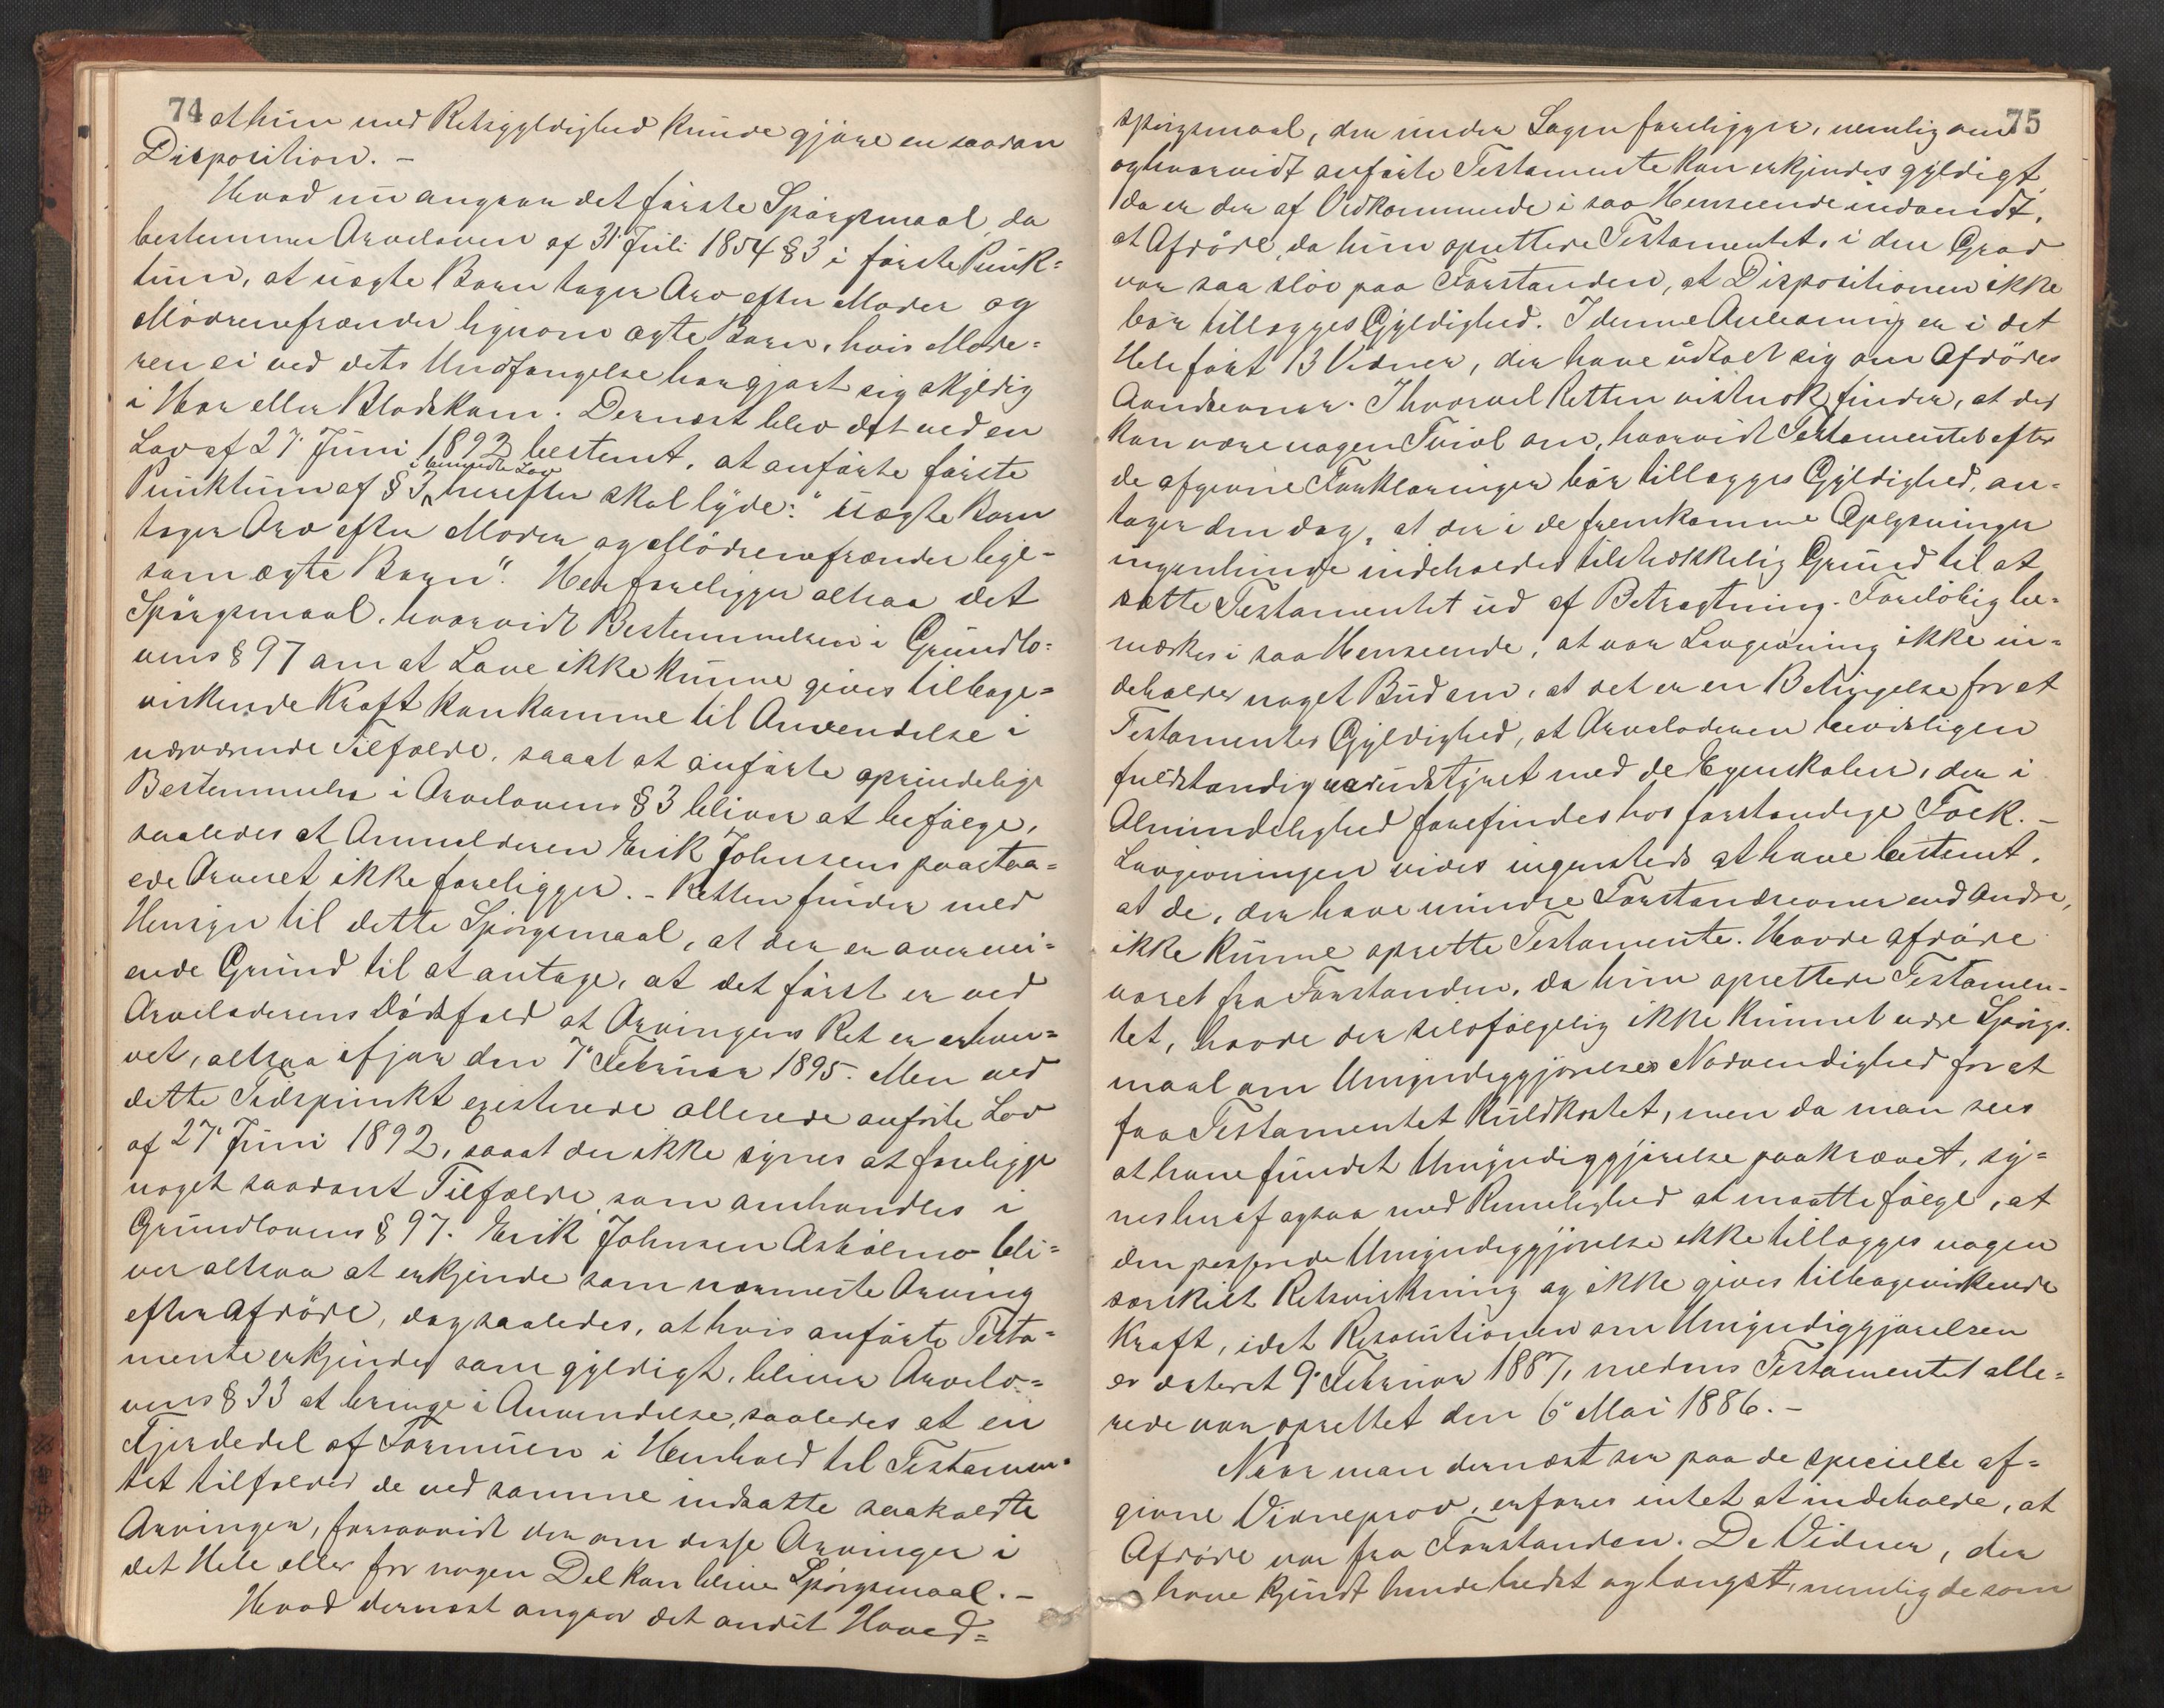 74
at hun med Retsgyldighed kunde gjøre en saadan
Disposition. -
Hvad nu angaar det første Spørgsmaal, da
bestemmer Arveloven af 31' Juli 1854 § 3 i første Punk=
tum, at uægte Børn tager Arv efter Moder og
Mødrenefrænder ligesom ægte Børn, hvis Mode=
ren ei ved dets Undfangelse har gjort sig skyldig
i Hor eller Blodskam. Dernæst blev det ved en
Lov af 27' Juni 1892 bestemt, at anførte første
Punktum af § 3 i bemeldte Lov herefter skal lyde: "Uægte Børn
tager Arv efter Moder og Mødrenefrænder lige=
som ægte Børn". Her foreligger altsaa det
Spørgsmaal, hvorvidt Bestemmelsen i Grundlo=
vens § 97 om at Love ikke kunne gives tilbage=
virkende Kraft kan komme til Anvendelse i
nærværende Tilfælde, saaat at anførte oprindelige
Bestemmelse i Arvelovens § 3 bliver at befølge,
saaledes at Anmelderen Erik Johnsens paastaa=
ede Arveret ikke foreligger. - Retten finder med
Hensyn til dette Spørgsmaal, at der er overvei=
ende Grund til at antage, at det først er ved
Arveladerens Dødsfald at Arvingens Ret er erhver=
vet, altsaa ifjor den 7' Februar 1895. Men ved
dette Tidspunkt existerede allerede anførte Lov
af 27' Juni 1892, saaat der ikke synes at foreligge
noget saadant Tilfælde, som omhandles i
Grundlovens § 97. Erik Johnsen Askølmo bli=
ver altsaa at erkjende som nærmeste Arving
efter Afdøde, dog saaledes, at hvis anførte Testa=
mente erkjendes som gyldigt, bliver Arvelo=
vens § 33 at bringe i Anvendelse, saaledes at en
Fjerdedel af Formuen i Henhold til Testamen=
tet tilfalder de ved samme indsatte saakaldte
Arvinger, forsaavidt der om disse Arvinger i
det Hele eller for nogen Del kan blive Spørgsmaal. -
Hvad dernæst angaar det andet Hoved=
75
spørgsmaal, der under Sagen foreligger, nemlig om
og hvorvidt anførte Testamente kan erkjendes gyldigt,
da er der af Vedkommende i saa Henseende indvendt,
at Afdøde, da hun oprettede Testamentet, i den Grad
var saa sløv paa Forstanden, at Dispositionen ikke
bør tillægges Gyldighed. I denne Anledning er i det
Hele ført 13 Vidner, der have udtalt sig om Afdødes
Aandsevner. Ihvorvel Retten vistnok finder, at der
kan være nogen Tvivl om, hvorvidt Testamentet efter
de afgivne Forklaringer bør tillægges Gyldighed, an=
tager den dog, at der i de fremkomne Oplysninger
ingenlunde indeholdes tilstrækkelig Grund til at
sætte Testamentet ud af Betragtning. Foreløbig be=
mærkes i saa Henseende, at vor Lovgivning ikke in=
deholder noget Bud om, at det er en Betingelse for et
Testamentes Gyldighed, at Arveladeren beviisligen
fuldstændig var udstyret med de Egenskaber, der i
Almindelighed forefindes hos forstandige Folk. -
Lovgivningen vides ingensteds at have bestemt,
at de, der have mindre Forstandsevner end Andre,
ikke kunne oprette Testamente. Havde afdøde
været fra Forstanden, da hun oprettede Testamen=
tet, havde der selvfølgelig ikke kunnet være Spørgs=
maal om Umyndiggjørelses Nødvendighed for at
faa Testamentet kuldkastet, men da man sees
at have fundet Umyndiggjørelse paakrævet, sy=
nes heraf ogsaa med Rimelighed at maatte følge, at
den passerede Umyndiggjørelse ikke tillægges nogen
særskilt Retsvirkning og ikke gives tilbagevirkende
Kraft, idet Resolutionen om Umyndiggjørelsen
er dateret 9' Februar 1887, medens Testamentet alle=
rede var oprettet den 6' Mai 1886. -
Naar man dernæst ser paa de specielle af=
givne Vidneprov, erfares intet at indeholde, at
Afdøde var fra Forstanden. De Vidner, der
have kjendt hende bedst og længst, nemlig de som